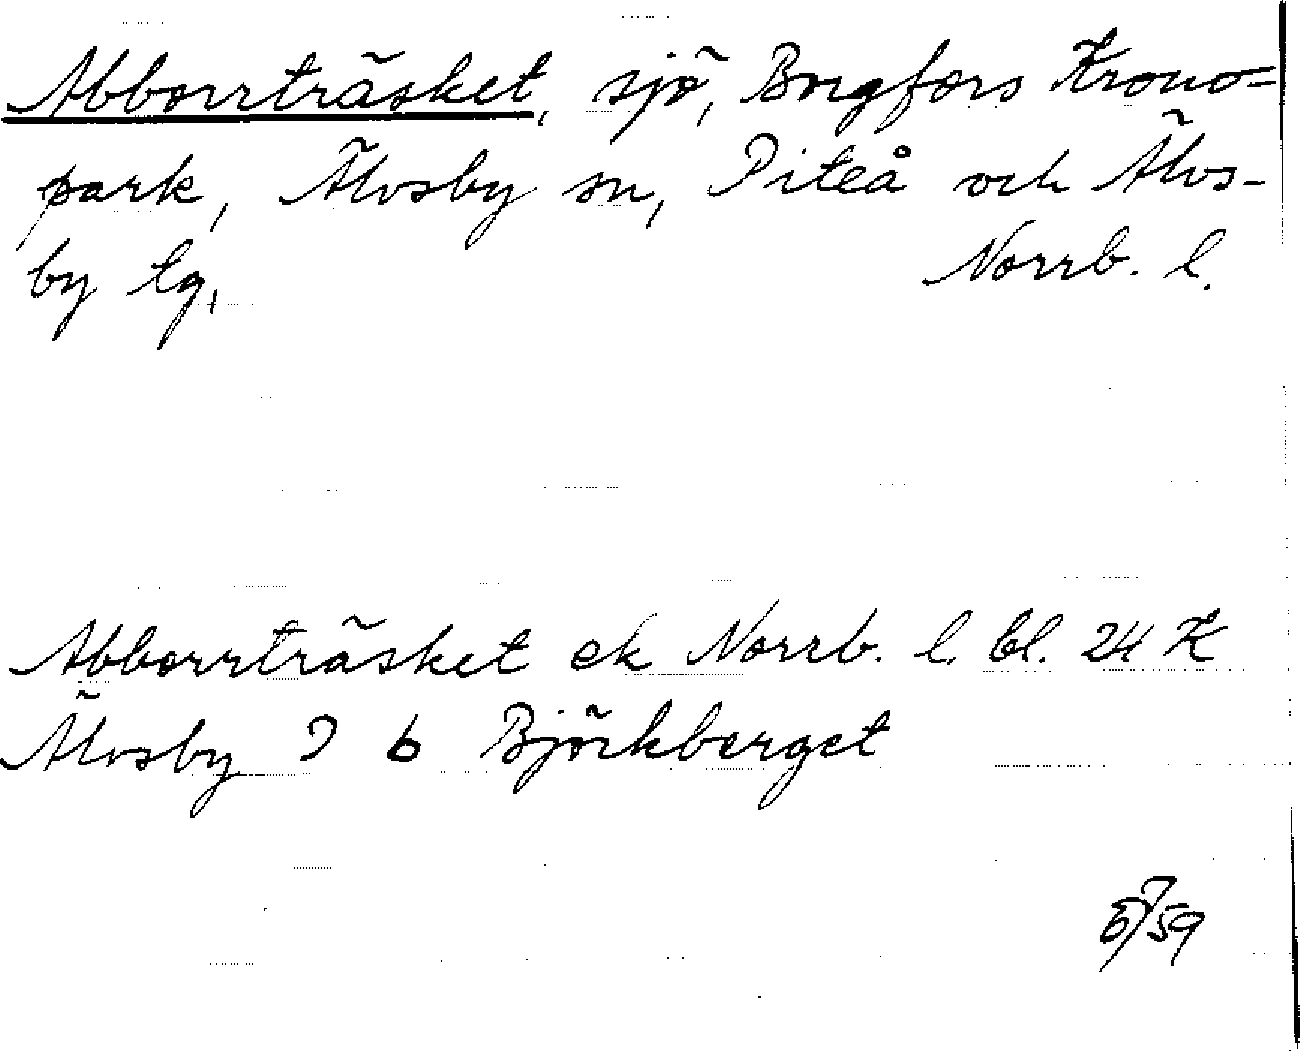 Abborrträsket, sjö, Borgfors Krono=
park, Älvsby sn, Piteå och Älvs-
by tg, Norrb. l.
Abborrträsket ek Norrb. l. bl. 24 K
Älvsby I b Björkberget
59